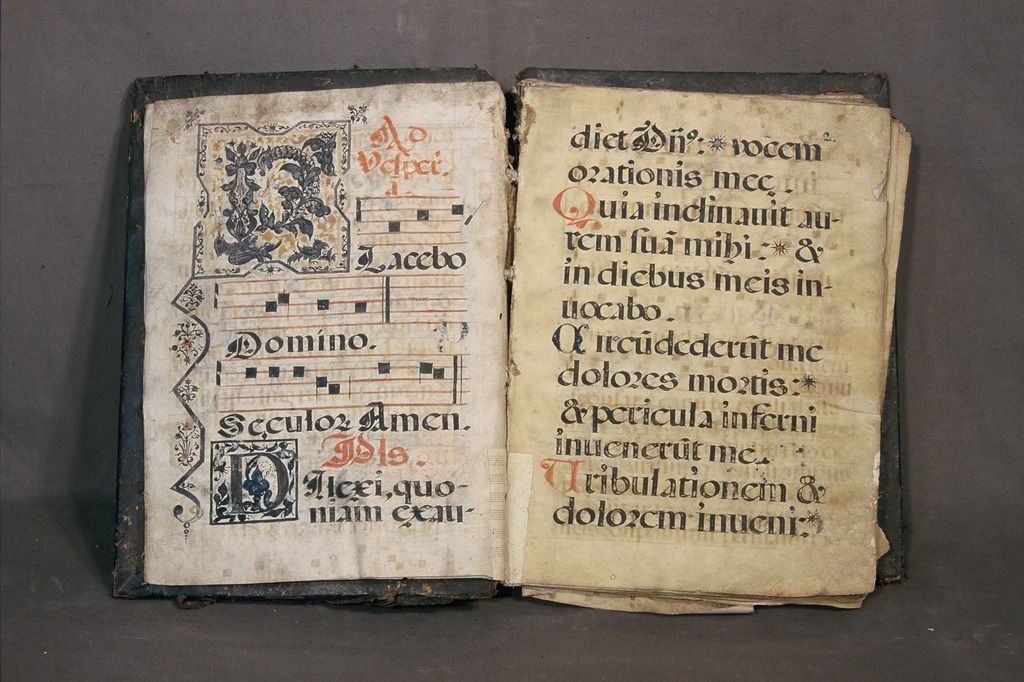 Ad
Vesper.
a.
Placebo
Domino.
Seculoꝝ Amen.
Pls.
Dilexi, quo-
niam exau-
diet Dñs: * vocem 2
orationis meę.
Quia inclinauit au-
rem suã mihi: * &
in diebus meis in-
uocabo.
Circũdederũt me
dolores mortis: *
& pericula inferni
inuenerũt me.
Tribulationem &
dolorem inueni: *